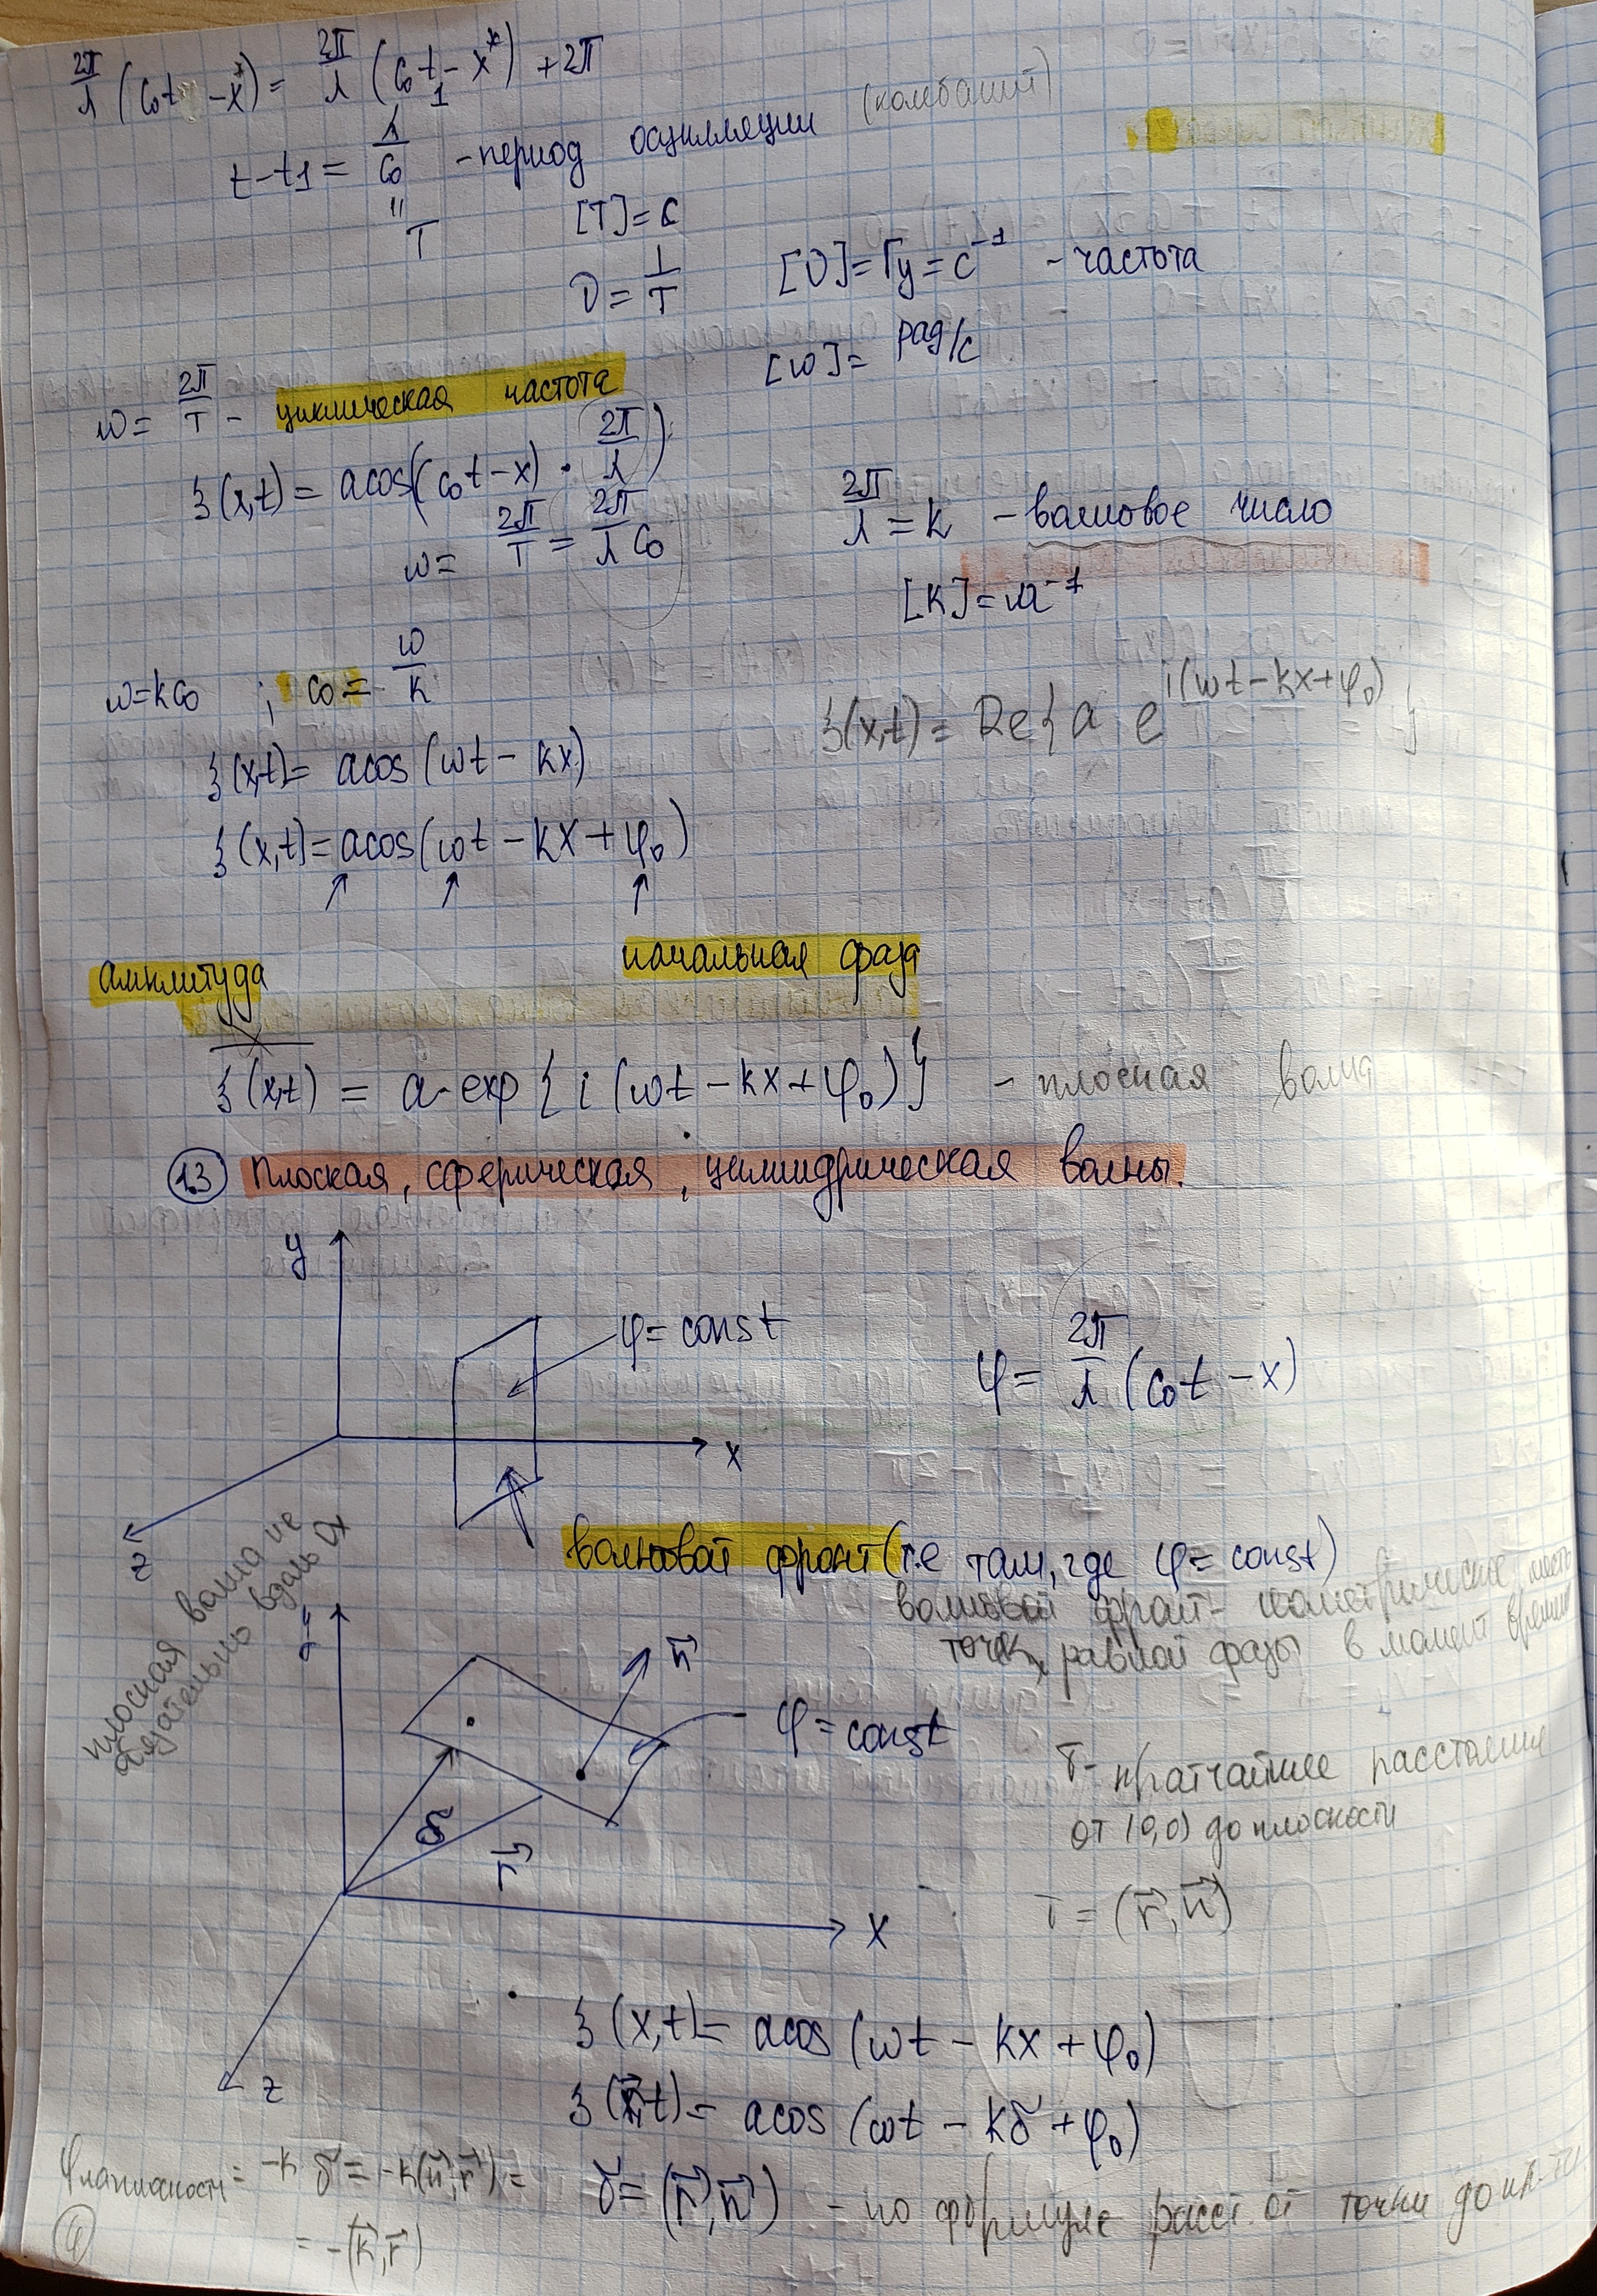 2π/λ (c₀t - x*) = 2π/λ (c₀t₁ - x*) + 2π
t - t1 = λ/c₀ - период осцилляции (колебаний)
" T
[T] = с
ν = 1/T [ν] = Гц = с⁻¹ - частота
ω = 2π/T - циклическая частота [ω] = рад/с
ξ(x,t) = a cos((c₀t - x) · 2π/λ)
2π/λ = k - волновое число
ω = 2π/T = 2π/λ c₀
[k] = м⁻¹
ω = kc₀ ; c₀ = ω/k
ξ(x,t) = Re{a e^{i(ωt - kx + φ₀)}}
ξ(x,t) = a cos(ωt - kx)
ξ(x,t) = a cos(ωt - kx + φ₀)
амплитуда начальная фаза
ξ(x,t) = a · exp{i(ωt - kx + φ₀)} - плоская волна
1.3 Плоская, сферическая, цилиндрическая волны.
y
φ = const
φ = 2π/λ (c₀t - x)
x
z
волновой фронт (т.е там, где φ = const)
волновой фронт - геометрическое место
точек, равной фазы в момент времени
плоская волна не
обязательно вдоль Ox
y
n⃗
φ = const
γ - кратчайшее расстояние
от (0,0) до плоскости
γ
r⃗
γ = (r⃗, n⃗)
x
z
ξ(x,t) = a cos(ωt - kx + φ₀)
ξ(r⃗,t) = a cos(ωt - kγ + φ₀)
γ = (r⃗, n⃗) - по формуле расст. от точки до пл-ти
φ на плоскости = -kγ = -k(n⃗, r⃗) =
= -(k⃗, r⃗)
4